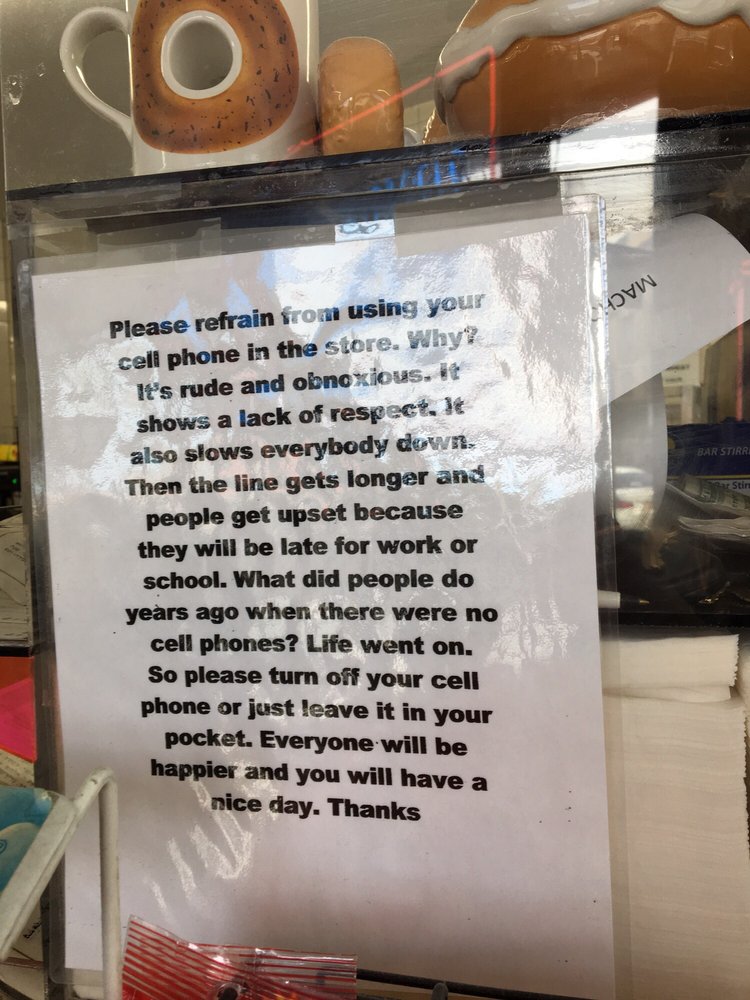 Please refrain from using your
cell phone in the store. Why?
It's rude and obnoxious. It
shows a lack of respect. It
also slows everybody down.
Then the line gets longer and
people get upset because
they will be late for work or
school. What did people do
years ago when there were no
cell phones? Life went on.
So please turn off your cell
phone or just leave it in your
pocket. Everyone will be
happier and you will have a
nice day. Thanks
BAR STIRR
Bar Stirr